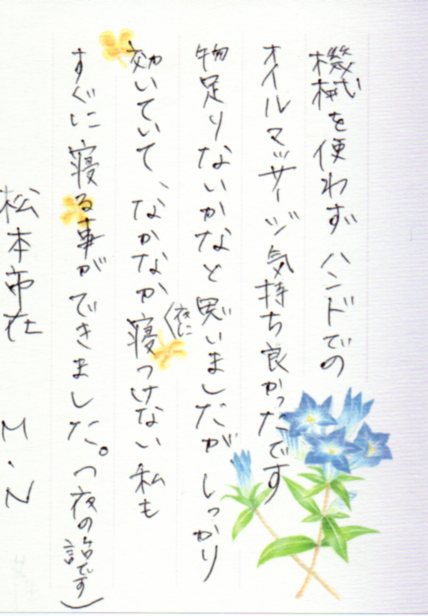 機械を使わず ハンドでの
オイルマッサージ気持ち良かったです
物足りないかなと思いましたが しっかり
効いていて、なかなか〈夜に寝つけない私も
すぐに寝る事ができました。(夜の話です)
松本市在 M.N